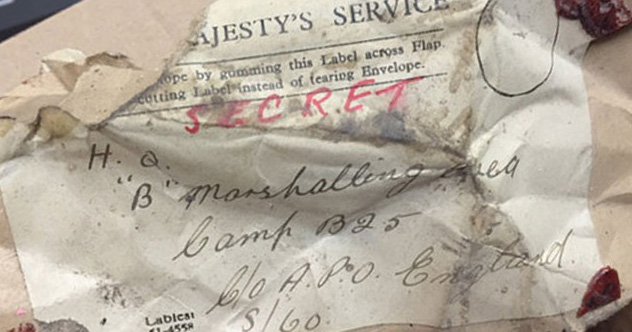 AJESTY'S SERVICE
ope by gumming this Label across Flap.
cutting Label instead of tearing Envelope.
SECRET
H. Q.
"B" Marshalling Area
Camp B25
C/o A.P.O. England.
S/60.
Labies:
51-4558